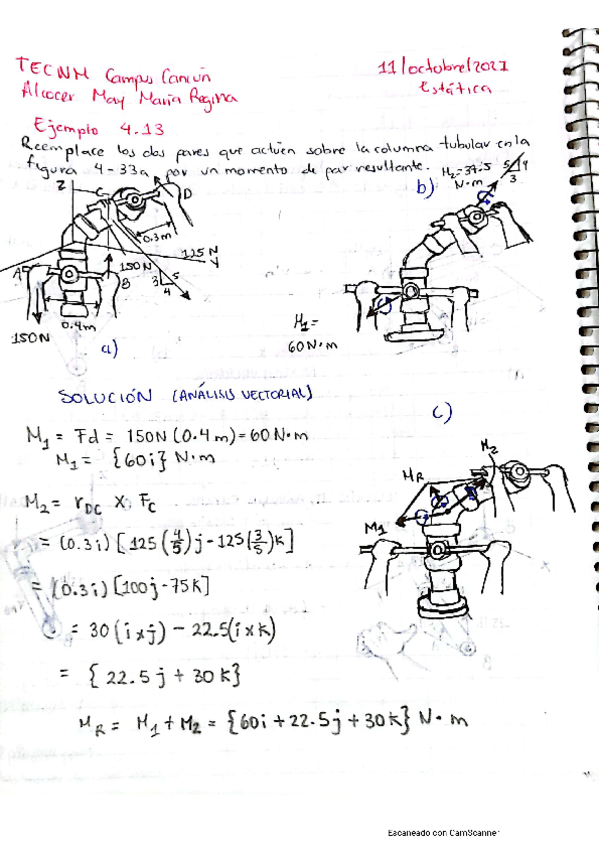 TECNM Campus Cancún
11/octubre/2021
Alcocer May María Regina
Estática
Ejemplo 4.13
Reemplace los dos pares que actúen sobre la columna tubular en la
figura 4-33a por un momento de par resultante.
M₂=37.5
N·m
5
4
3
b)
Z
C
D
0.3m
125N
Y
A
150N
B
3
5
4
0.4m
150N
a)
M₁=
60N·m
SOLUCIÓN (ANÁLISIS VECTORIAL)
c)
M₁ = Fd = 150N(0.4m)=60N·m
M₁ = {60i} N·m
M₂
MR
M₁
M₂ = rDC X FC
= (0.3i)[125(4/5)j-125(3/5)k]
= (0.3i)[100j-75k]
= 30(ixj) - 22.5(ixk)
= {22.5j + 30k}
MR = M₁+M₂ = {60i+22.5j+30k} N·m
Escaneado con CamScanner